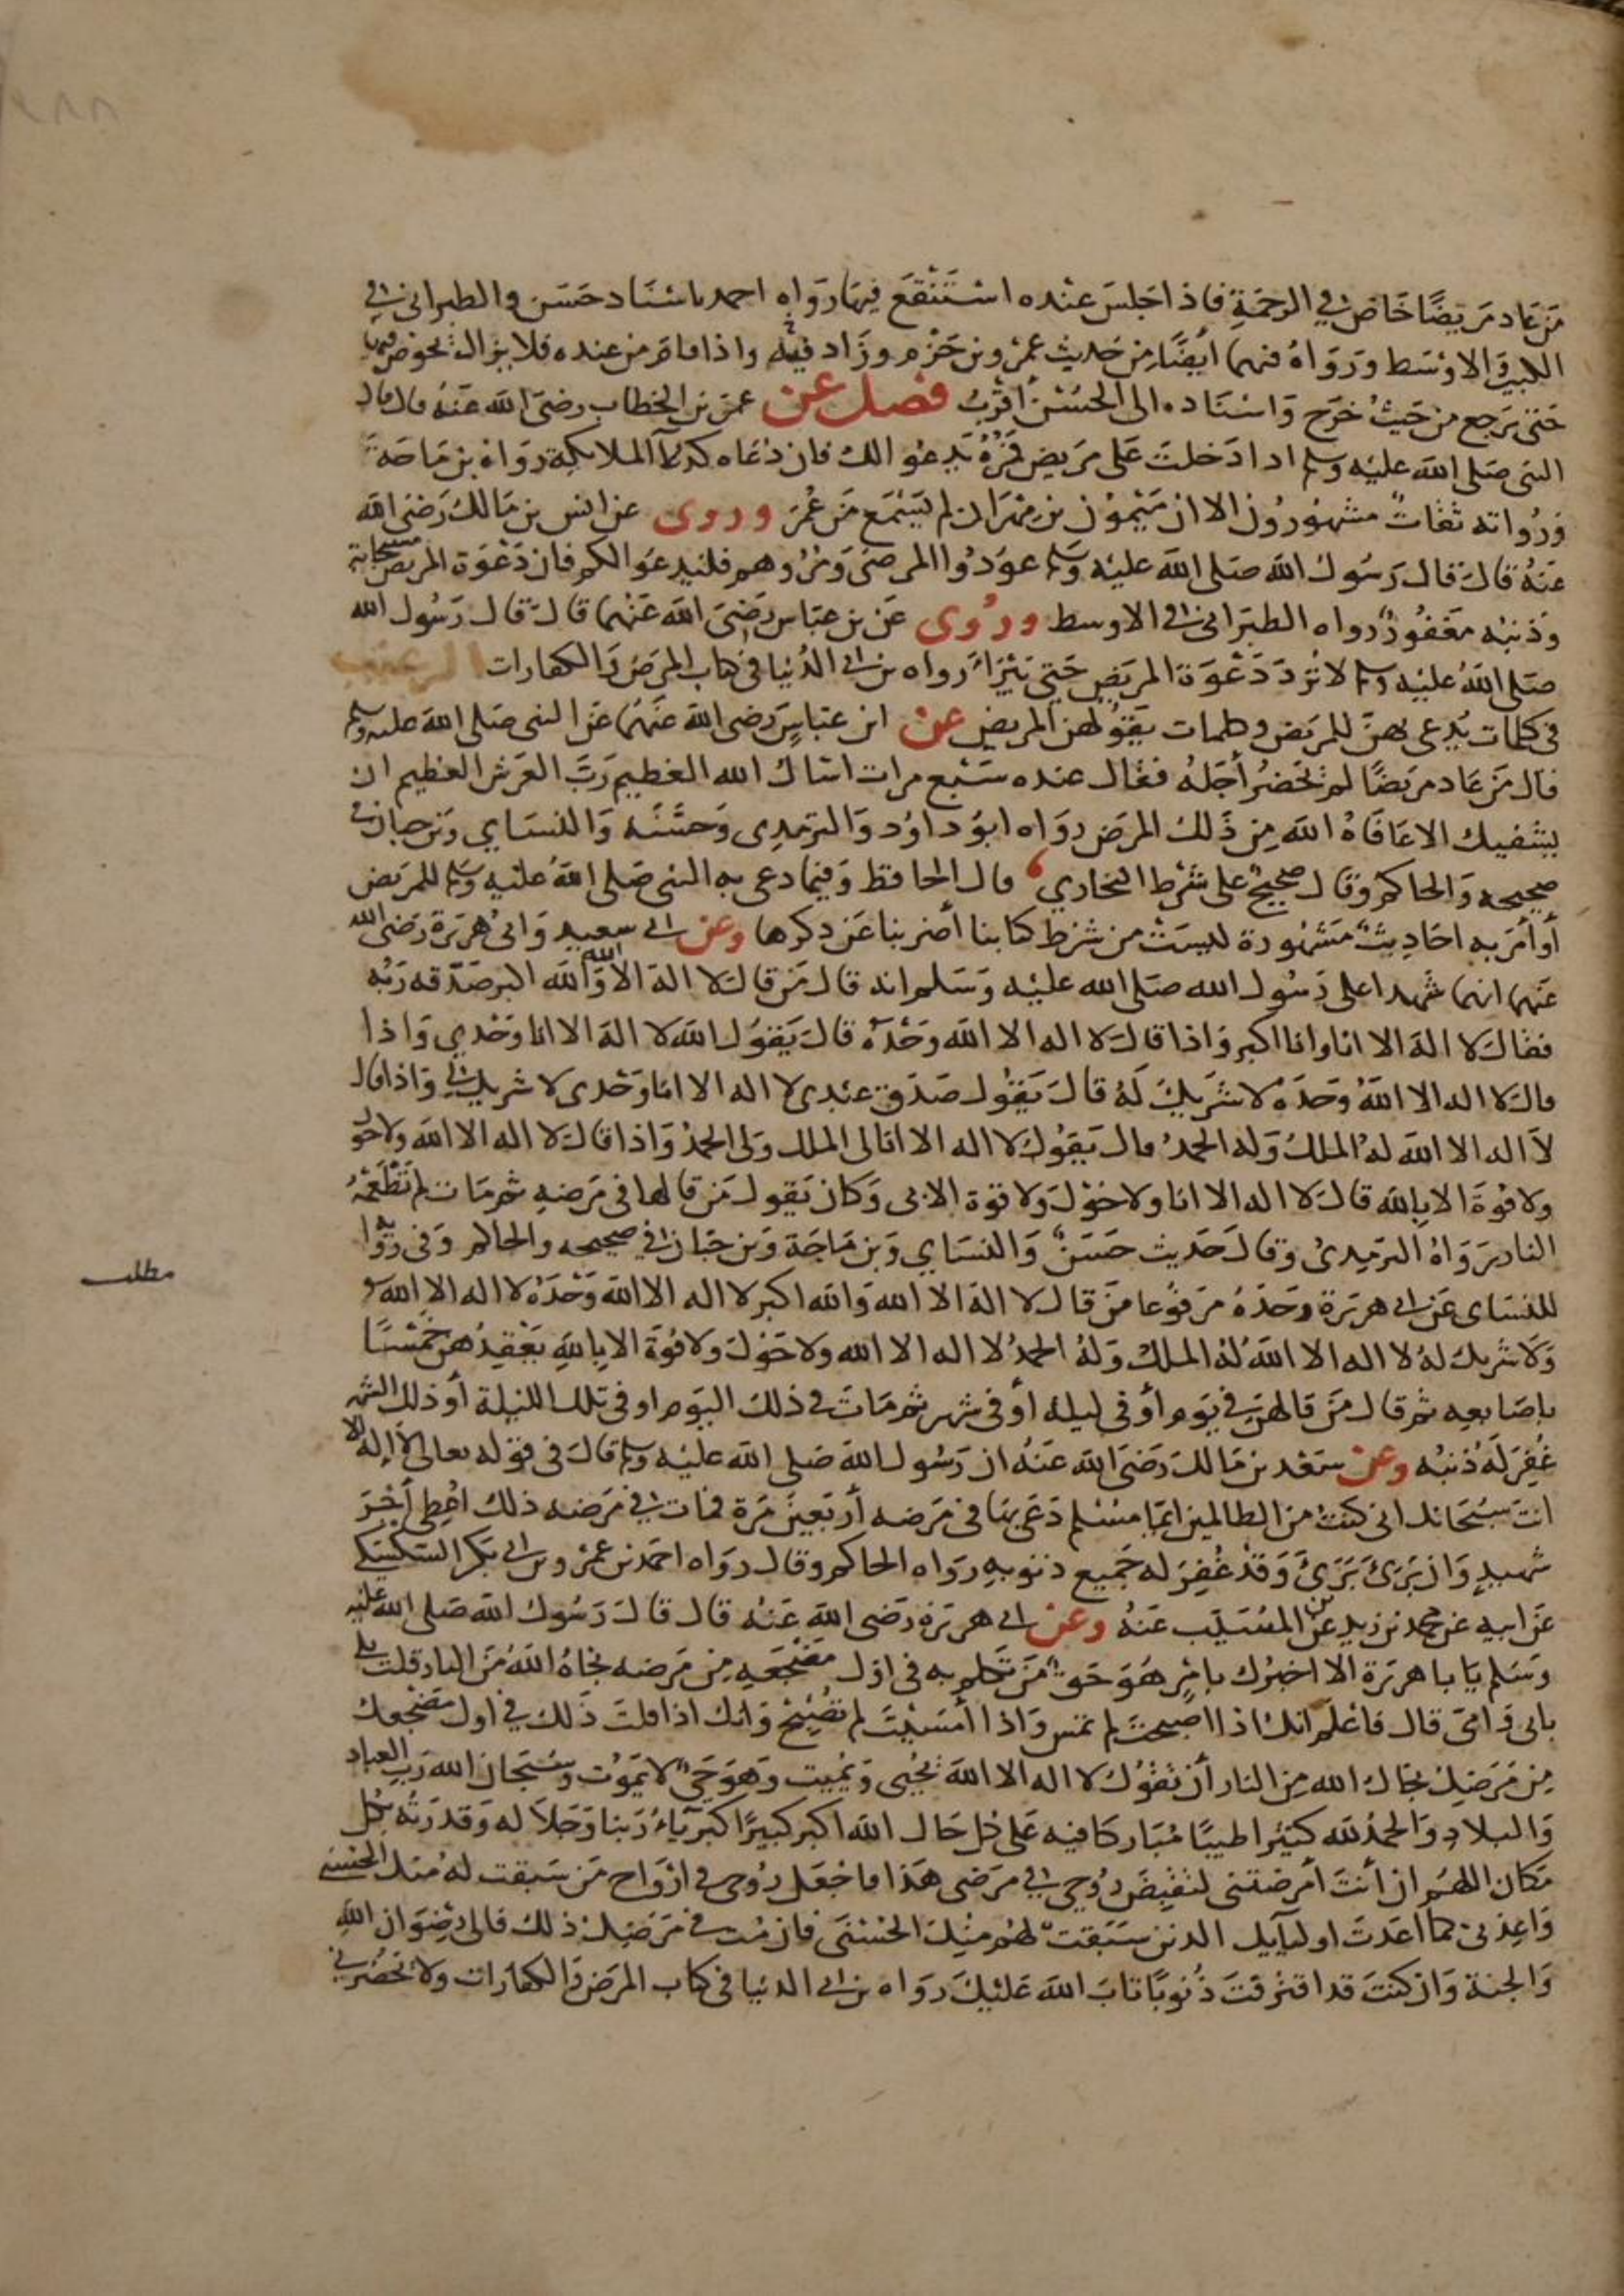 من عاد مريضًا خاض في الرحمة فاذا جلس عنده استنقع فيها رواه احمد باسناد حسن والطبراني في
الكبير والاوسط ورواه فيهما أيضًا من حديث عمرو بن حزم وزاد فيه واذا قام من عنده فلا يزال يخوض فيها
حتى يرجع من حيث خرج واسناده الى الحسن أقرب فصل عن عمر بن الخطاب رضى الله عنه قال قال
النبى صلى الله عليه وسلم اذا دخلت على مريض فمره يدعو لك فان دعاه كدعآ الملايكة رواه بن ماجة
ورواته ثقات مشهورون الا ان ميمون بن مهران لم يسمع من عمر وروى عن انس بن مالك رضى الله
عنه قال قال رسول الله صلى الله عليه وسلم عودوا المرضى ومروهم فليدعوا لكم فان دعوة المريض مستجابة
وذنبه مغفور رواه الطبراني في الاوسط وروى عن بن عباس رضى الله عنهما قال قال رسول الله
صلى الله عليه وسلم لا ترد دعوة المريض حتى يبرأ رواه بن ابي الدنيا في كتاب المرض والكفارات الترغيب
في كلمات يدعى بهن للمريض وكلمات يقولهن المريض عن ابن عباس رضى الله عنهما عن النبى صلى الله عليه وسلم
قال من عاد مريضًا لم يحضر أجله فقال عنده سبع مرات اسأل الله العظيم رب العرش العظيم ان
يشفيك الا عافاه الله من ذلك المرض رواه ابو داود والترمدى وحسنه والنساي وبن حبان في
صحيحه والحاكم وقال صحيح على شرط البخاري قال الحافظ وفيما دعى به النبى صلى الله عليه وسلم للمريض
أو أمر به احاديث مشهورة ليست من شرط كتابنا أضربنا عن دكرها وعن ابي سعيد وابى هريرة رضى الله
عنهما انهما شهدا على رسول الله صلى الله عليه وسلم انه قال من قال لا اله الا الله والله اكبر صدقه ربه
فقال لا اله الا انا وانا اكبر واذا قال لا اله الا الله وحده قال يقول الله لا اله الا انا وحدي واذا
قال لا اله الا الله وحده لا شريك له قال يقول صدق عبدى لا اله الا انا وحدى لا شريك لي واذا قال
لا اله الا الله له الملك وله الحمد قال يقول لا اله الا انا لى الملك ولى الحمد واذا قال لا اله الا الله ولا حول
ولا قوة الا بالله قال لا اله الا انا ولا حول ولا قوة الا بى وكان يقول من قالها في مرضه ثم مات لم تطعمه
النار رواه الترمدى وقال حديث حسن والنساي وبن ماجة وبن حبان في صحيحه والحاكم وفى رواية
مطلب
للنساى عن ابي هريرة وحده مرفوعا من قال لا اله الا الله والله اكبر لا اله الا الله وحده لا اله الا الله
ولا شريك له لا اله الا الله له الملك وله الحمد لا اله الا الله ولا حول ولا قوة الا بالله يعقدهن خمسًا
باصابعه ثم قال من قالهن في يوم أو في ليلة أو فى شهر ثم مات في ذلك اليوم او فى تلك الليلة أو ذلك الشهر
غفر له ذنبه وعن سعد بن مالك رضى الله عنه ان رسول الله صلى الله عليه وسلم قال في قوله تعالى لا إله الا
انت سبحانك انى كنت من الظالمين ايما مسلم دعى بها في مرضه أربعين مرة فمات في مرضه ذلك اعطى أجر
شهيد وان برئ برئ وقد غفر له جميع ذنوبه رواه الحاكم وقال رواه احمد بن عمرو بن ابي بكر السكسكى
عن ابيه عن محمد بن زيد عن بن المسيب عنه وعن ابي هريرة رضى الله عنه قال قال رسول الله صلى الله عليه
وسلم يا با هريرة الا اخبرك بامر هو حق من تكلم به فى اول مضجعه من مرضه نجاه الله من النار قلت بلى
بابى وامى قال فاعلم انك اذا اصبحت لم تمس واذا أمسيت لم تصبح وانك اذا قلت ذلك في اول مضجعك
من مرضك نجاك الله من النار أن تقول لا اله الا الله يحيى ويميت وهو حي لا يموت وسبحان الله رب العباد
والبلاد والحمد لله كثيرا طيبًا مباركا فيه على كل حال الله اكبر كبيرًا كبرياء ربنا وجلاله وقدرته بكل
مكان اللهم ان أنت أمرضتنى لتقبض روحي في مرضى هذا فاجعل روحى في ارواح من سبقت له منك الحسنى
واعذنى كما اعدت اوليآيك الدين سبقت لهم منك الحسنى فان مت في مرضك ذلك فالى رضوان الله
والجنة وان كنت قد اقترفت ذنوبًا تاب الله عليك رواه بن ابي الدنيا في كتاب المرض والكفارات ولا يحضرني